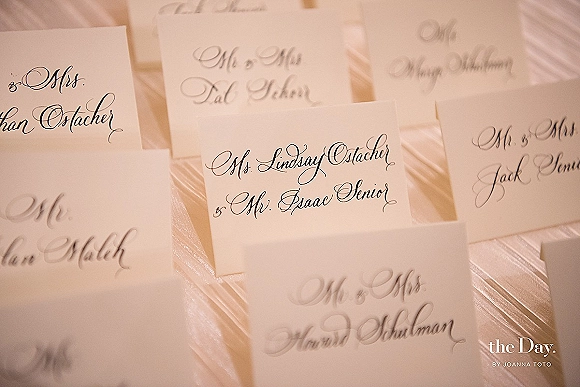 & Mrs.
han Ostacher
Mr. & Mrs.
Pat Schorr
Ms.
Marge Schulman
Ms Lindsay Ostacher
& Mr. Isaac Senior
Mr. & Mrs
Jack Senior
Mr.
lan Malch
Mr. & Mrs.
Howard Schulman
the Day.
BY JOANNA TOTO